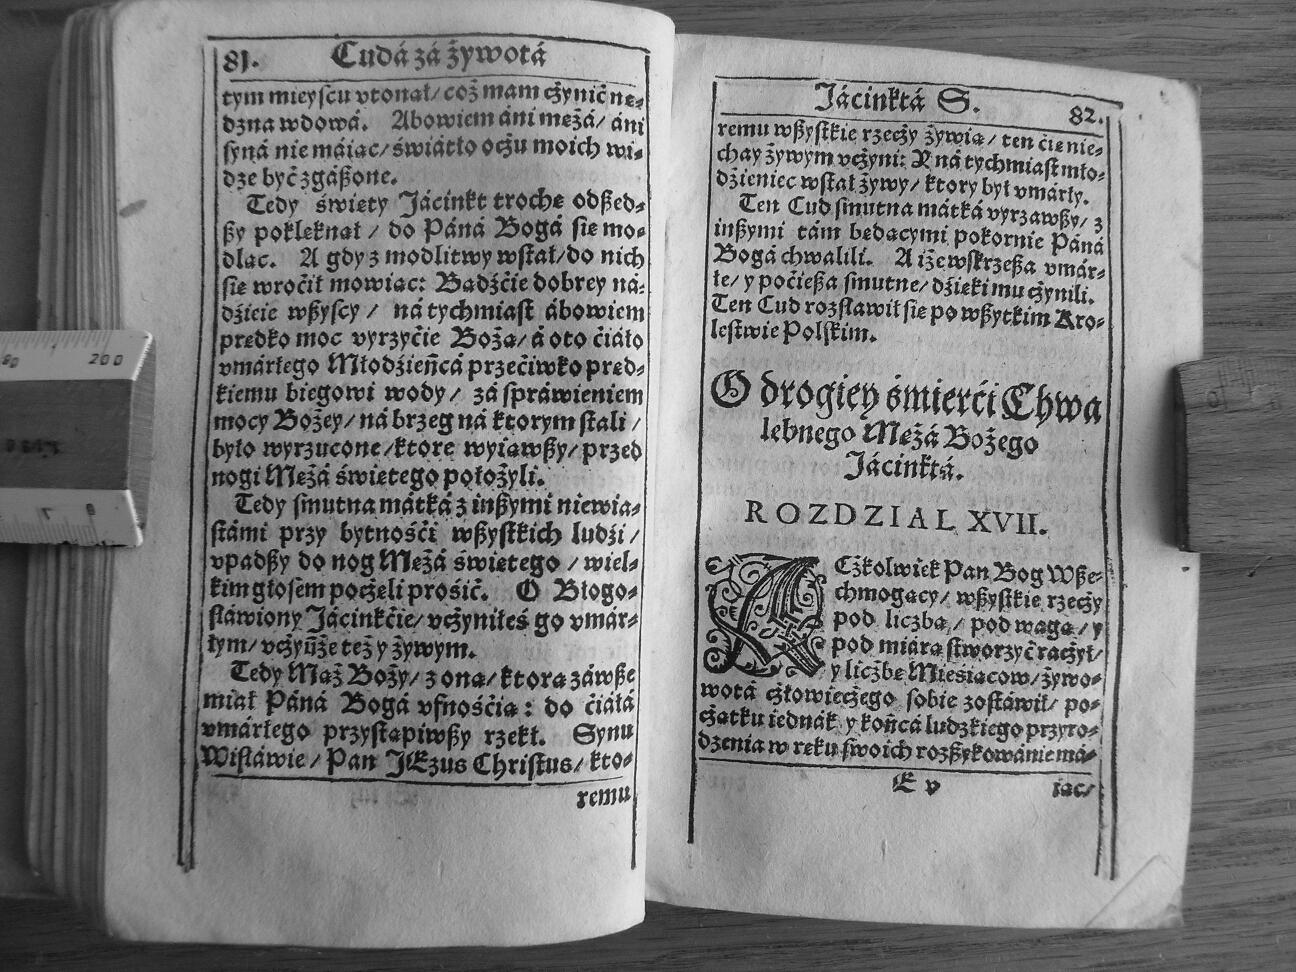 81. Cudá zá żywotá
tym mieyscu vtonął/ coż mam cżynić nę-
dzna wdowá. Abowiem áni mężá/ áni
syná nie máiąc/ świátło ocżu moich wi-
dzę być zgászone.
Tedy święty Jácinkt trochę odszed-
szy poklęknął / do Páná Bogá się mo-
dląc. A gdy z modlitwy wstał/ do nich
się wroćił mowiąc: Bądźćie dobrey ná-
dźieie wszyscy / ná tychmiast ábowiem
prędko moc vyrzyćie Bożą/ á oto ćiáło
vmárłego Młodźieńcá przećiwko pręd-
kiemu biegowi wody / zá spráwieniem
mocy Bożey/ ná brzeg ná ktorym stali /
było wyrzucone/ ktore wyiąwszy/ przed
nogi Mężá świętego położyli.
Tedy smutna mátká z inszymi niewia-
stámi przy bytnośći wszystkich ludźi /
vpadszy do nog Mężá świętego / wiel-
kim głosem pocżęli prośić. O Błogo-
słáwiony Jácinkćie/ vcżyniłeś go vmár-
łym/ vcżyńże też y żywym.
Tedy Mąż Boży/ z oną/ ktorą záwsze
miał Páná Bogá vfnośćią: do ćiáłá
vmárłego przystąpiwszy rzekł. Synu
Wisłáwie / Pan JEzus Christus/ kto-
remu
Jácinktá S. 82.
remu wszystkie rzecży żywią/ ten ćię nie-
chay żywym vcżyni: Y ná tychmiast mło-
dźieniec wstał żywy/ ktory był vmárły.
Ten Cud smutna mátká vyrzawszy/ z
inszymi tám będącymi pokornie Páná
Bogá chwalili. A iż ewskrzesza vmár-
łe/ y poćiesza smutne/ dźięki mu cżynili.
Ten Cud rozsławił się po wszytkim Kro-
lestwie Polskim.
O drogiey śmierći Chwa
lebnego Mężá Bożego
Jácinktá.
ROZDZIAL XVII.
ACżkolwiek Pan Bog Wsze-
chmogący/ wszystkie rzecży
pod liczbą/ pod wagą/ y
pod miárą stworzyć racżył/
y licżbę Mieśiącow/ żywo-
wotá cżłowiecżego sobie zostáwił/ po-
cżątku iednák y końcá ludzkiego przyro-
dzenia w ręku swoich rozszykowánie má-
E v iąc/